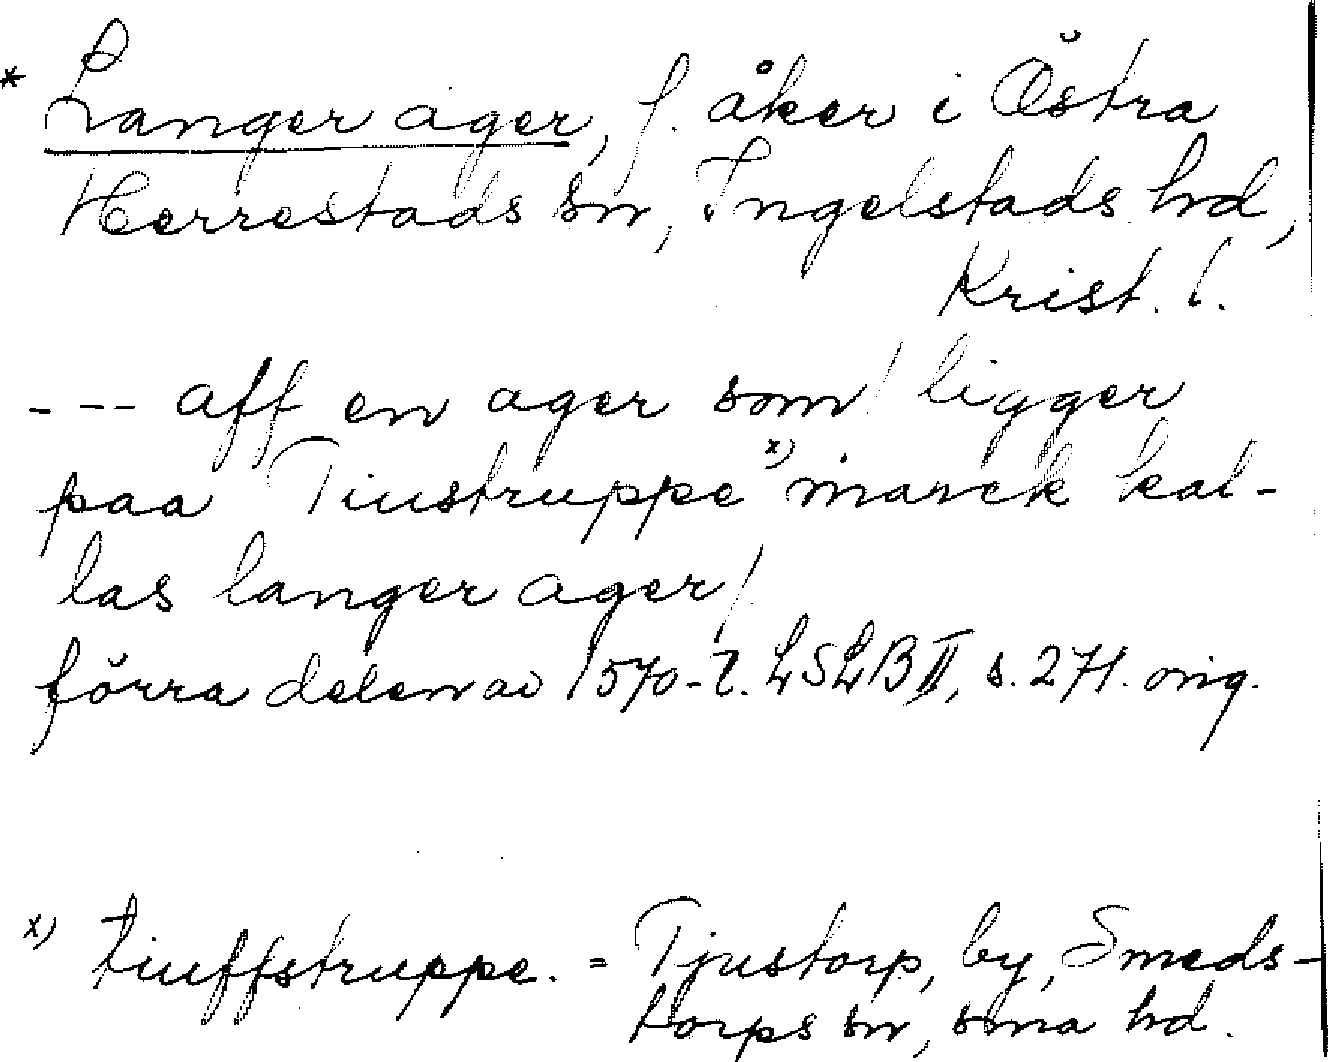 * Langer ager, f. åker i Östra
Herrestads sn, Ingelstads hd,
Krist. l.
--- aff en ager som / ligger
paa Tiustruppe x) marck kal-
las langer ager /
förra delen av 1570-t. LSLB II, s. 271. orig.
x) tiuffstruppe. = Tjustorp, by, Smeds-
torps sn, sma hd.